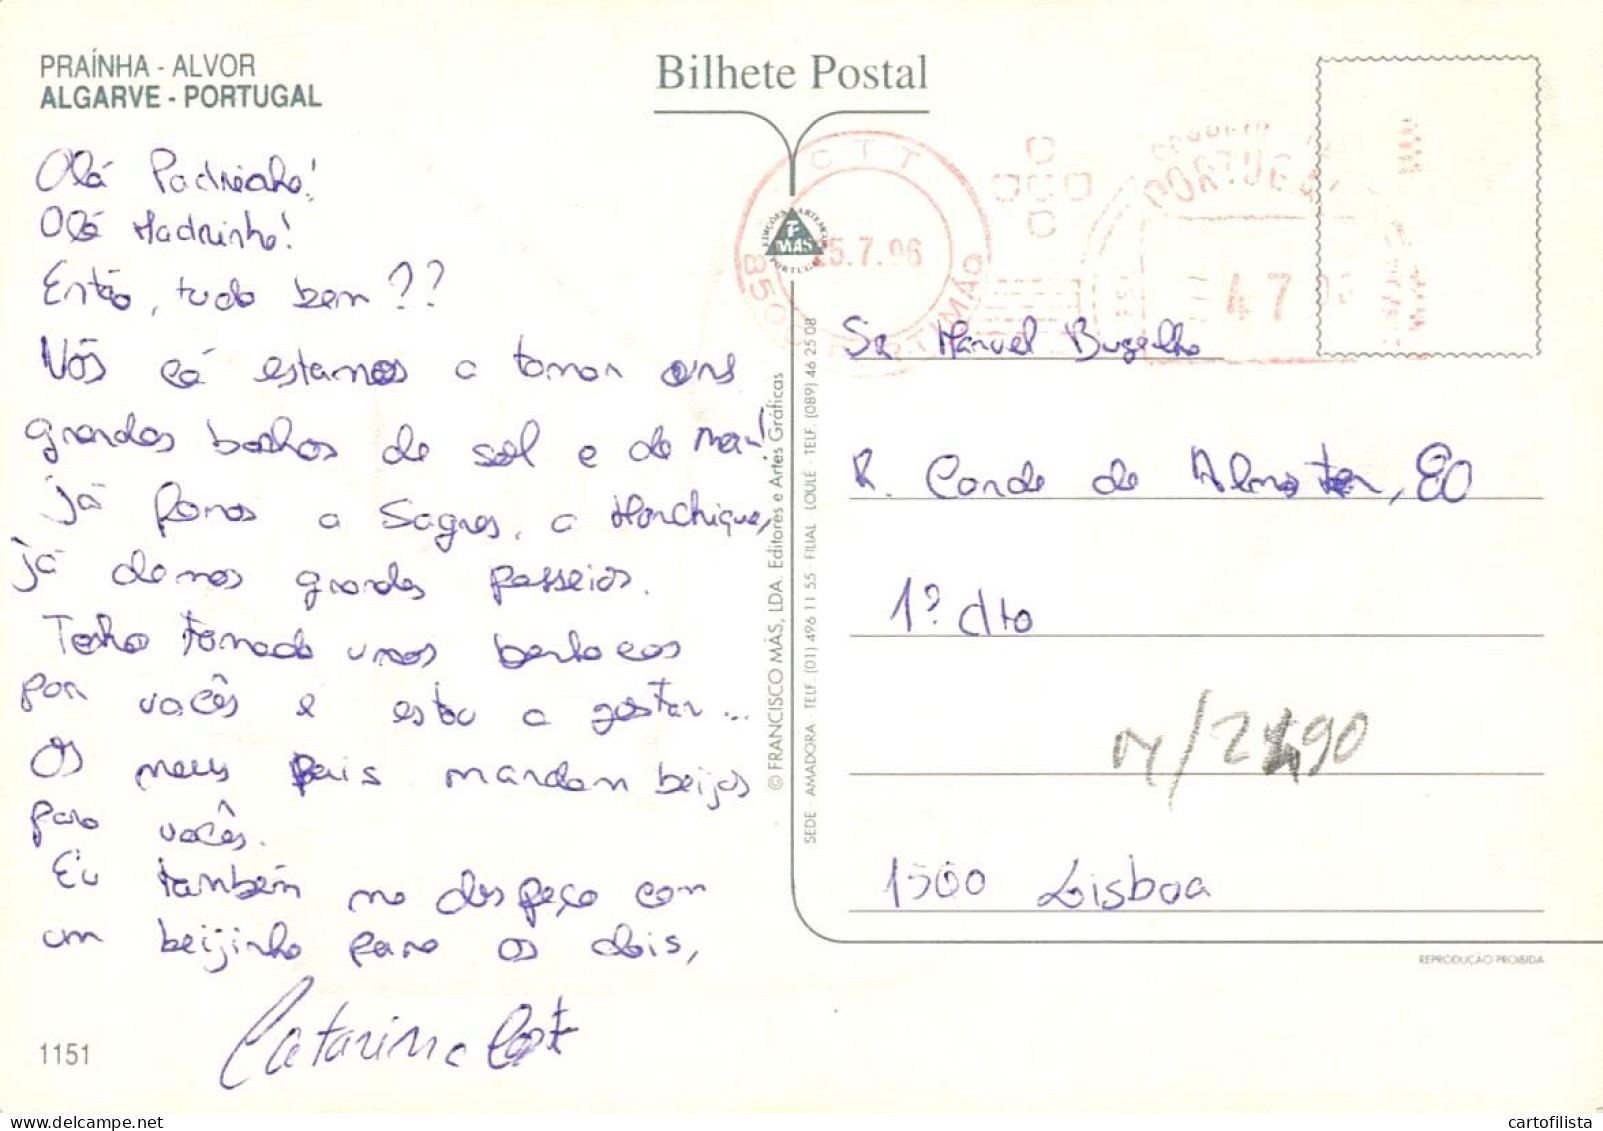 PRAÍNHA - ALVOR
ALGARVE - PORTUGAL
Bilhete Postal
Olá Padrinho!
Olá Madrinha!
Então, tudo bem??
Nós cá estamos a tomar uns
grandes banhos de sol e de mar!
Já fomos a Sagres, a Monchique,
já demos grandes passeios.
Tenho tomado unos
por vocês e estou a gostar...
Os meus pais mandam beijos
para vocês.
Eu também me despeço com
um beijinho para os dois,
Catarina Costa
1151
CTT
25.7.96
PORTUGAL
47
EDIÇÕES ARTEMÁS
MÁS
PORTUGAL
© FRANCISCO MÁS, LDA. Editores e Artes Gráficas
SEDE - AMADORA - TELF. (01) 496 11 55 - FILIAL LOULÉ - TELF. (089) 46 25 08
Sr. Manuel Bugalho
R. Conde de Almoster, 80
1º dto
1500 Lisboa
REPRODUÇÃO PROIBIDA
cartofilista